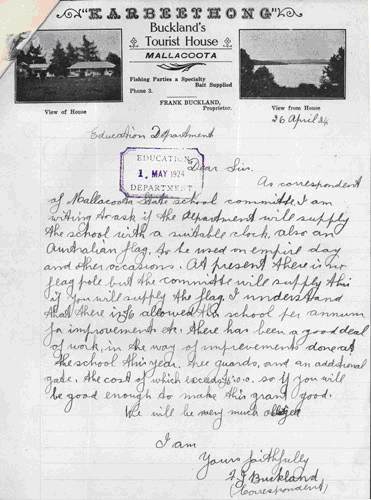 "KARBEETHONG"
Buckland's
Tourist House
MALLACOOTA
Fishing Parties a Specialty
Bait Supplied
Phone 5.
FRANK BUCKLAND,
Proprietor.
View of House
View from House
26 April 24
Education Department
EDUCATION
1. MAY 1924
DEPARTMENT
Dear Sir.
As correspondent
of Mallacoota State school committe, I am
writing to ask if the department will supply
the school with a suitable clock, also an
Australian flag, to be used on empire day
and other occasions. At present there is no
flag pole but the committe will supply this
if you will supply the flag. I understand
that there is allowed this school per annum
for improvements etc. there has been a good deal
of work, in the way of improvements done at
the school this year. Tree guards, and an additional
gate. the cost of which exceeds so if you will
be good enough to make this grant good.
We will be very much obliged
I am
Yours faithfully
F. J. Buckland
(Correspondent)